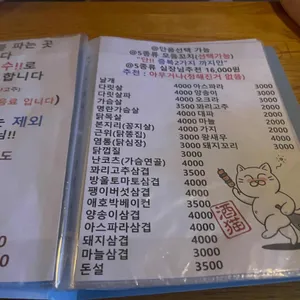 파는 곳
수!!로
(음료 입니다)
제외
니!!
@단품선택 가능
@5종류 모듬꼬치(선택가능)
"단!! 중복2가지 까지만"
@5종류 실장님추천 16,000원
추천 : 아무거나(정해진거 없음)
날개 4000 아스파라 3000
다릿살 4000 양송이 3000
다릿살파 4000 오크라 3000
가슴살 3500 꽈리고추 3000
명란가슴살 4000 대파 3000
닭목살 4000 마늘 3000
본지리(꽁지살) 4000 가지 3000
근위(닭똥집) 3000 왕새우 4000
염통(닭심장) 3000 돼지꼬리 3000
닭껍질 3000
난코츠(가슴연골) 4000
꽈리고추삼겹 4000
방울토마토삼겹 4000
팽이버섯삼겹 4000
애호박베이컨 3500
양송이삼겹 4000
아스파라삼겹 4000
돼지삼겹 4000
마늘삼겹 3000
돈설 3500
酒猫